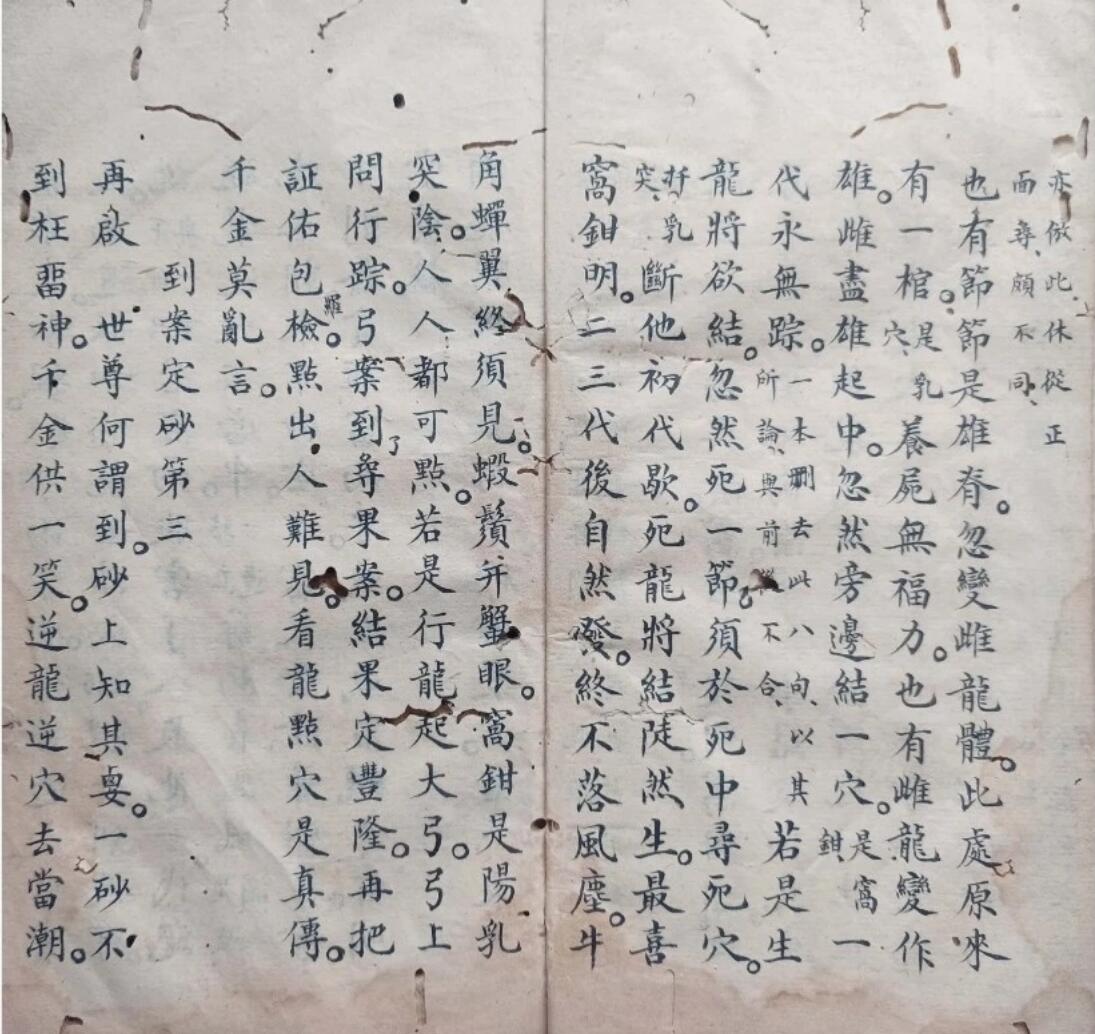 亦倣此休從正
面尋頗不同
也有節節是雄脊。忽變雌龍體。此處原來
有一棺。是乳穴、養屍無福力。也有雌龍變作
雄。雌盡雄起中。忽然旁邊結一穴。是窩鉗一
代永無踪。一本刪去此八句、以其所論、與前不合、若是生
龍將欲結。忽然死一節。須於死中尋死穴。
乳突、斷他初代歇。死龍將結陡然生。最喜
窩鉗明。二三代後自然發。終不落風塵。牛
角蟬翼終須見。蝦鬚并蟹眼。窩鉗是陽乳
突陰。人人都可點。若是行龍起大弓。弓上
問行踪。弓案到了尋果案。結果定豐隆。再把
証佑包羅檢點出人難見。看龍點穴是真傳。
千金莫亂言。
到案定砂第三
再啟世尊何謂到。砂上知其妄。一砂不
到枉畱神。千金供一笑。逆龍逆穴去當潮。